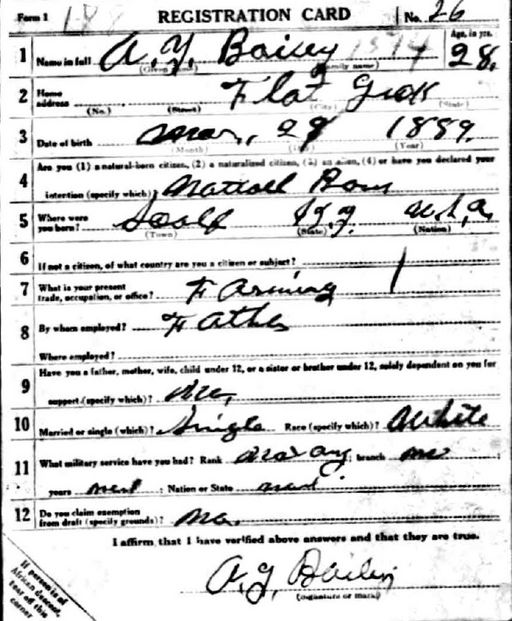 Form 1 REGISTRATION CARD No. 26
Age, in yrs.
1 Name in full A. Y. Bailey 28.
(Given name) (Family name)
2 Home address Flat
(No.) (Street) (City) (State)
3 Date of birth Mar, 29 1889.
(Month) (Day) (Year)
4 Are you (1) a natural-born citizen, (2) a naturalized citizen, (3) an alien, (4) or have you declared your
intention (specify which)? Born
5 Where were you born? Ky. U.S.A.
(Town) (State) (Nation)
6 If not a citizen, of what country are you a citizen or subject?
7 What is your present trade, occupation, or office? Farming
8 By whom employed? Father
Where employed?
9 Have you a father, mother, wife, child under 12, or a sister or brother under 12, solely dependent on you for
support (specify which)? No,
10 Married or single (which)? Single Race (specify which)? White
11 What military service have you had? Rank branch
years Nation or State
12 Do you claim exemption from draft (specify grounds)? No.
I affirm that I have verified above answers and that they are true.
A. Y. Bailey
(Signature or mark)
If person is of
African descent,
tear off this
corner